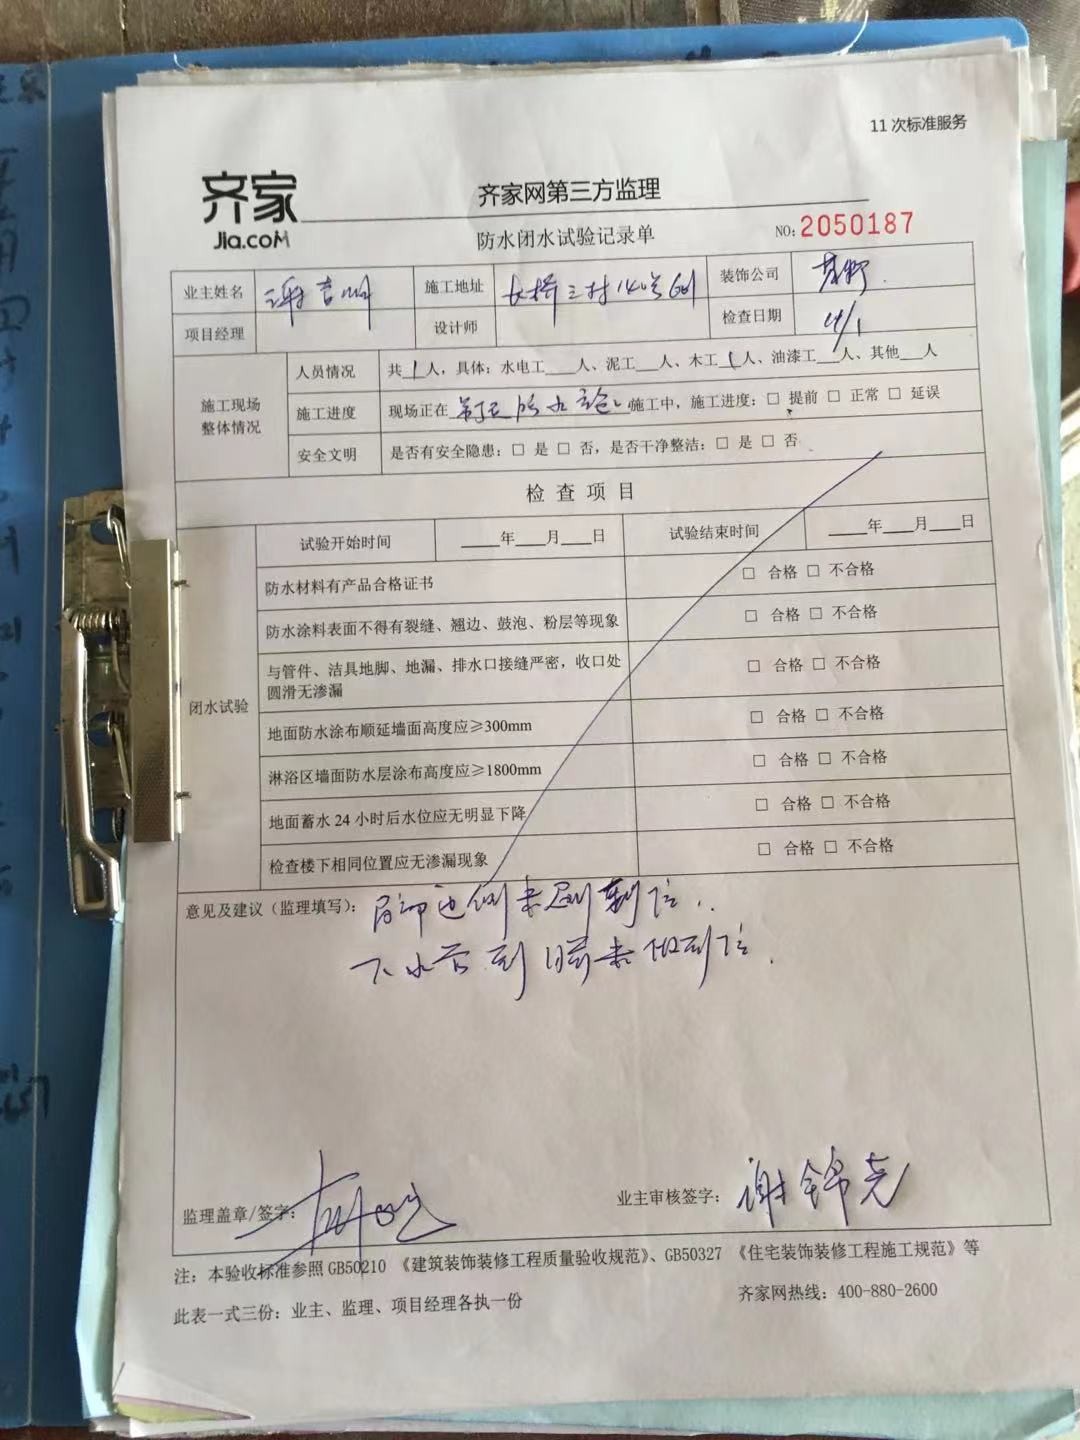 11 次标准服务
齐家
Jia.coM
齐家网第三方监理
防水闭水试验记录单
NO: 2050187
业主姓名 施工地址 长桥三村140号601 装饰公司
项目经理 设计师 检查日期
施工现场整体情况
人员情况 共1人，具体：水电工___人、泥工___人、木工1人、油漆工___人、其他___人
施工进度 现场正在 施工中，施工进度：□ 提前 □ 正常 □ 延误
安全文明 是否有安全隐患：□ 是 □ 否，是否干净整洁：□ 是 □ 否
检 查 项 目
闭水试验
试验开始时间 ____年___月___日 试验结束时间 ____年___月___日
防水材料有产品合格证书 □ 合格 □ 不合格
防水涂料表面不得有裂缝、翘边、鼓泡、粉层等现象 □ 合格 □ 不合格
与管件、洁具地脚、地漏、排水口接缝严密，收口处
圆滑无渗漏 □ 合格 □ 不合格
地面防水涂布顺延墙面高度应≥300mm □ 合格 □ 不合格
淋浴区墙面防水层涂布高度应≥1800mm □ 合格 □ 不合格
地面蓄水 24 小时后水位应无明显下降 □ 合格 □ 不合格
检查楼下相同位置应无渗漏现象 □ 合格 □ 不合格
意见及建议（监理填写）：局部边侧未刷到位.
下水管到顶未做到位.
监理盖章/签字：
业主审核签字：谢锦尧
注：本验收标准参照 GB50210 《建筑装饰装修工程质量验收规范》、GB50327 《住宅装饰装修工程施工规范》等
此表一式三份：业主、监理、项目经理各执一份
齐家网热线：400-880-2600